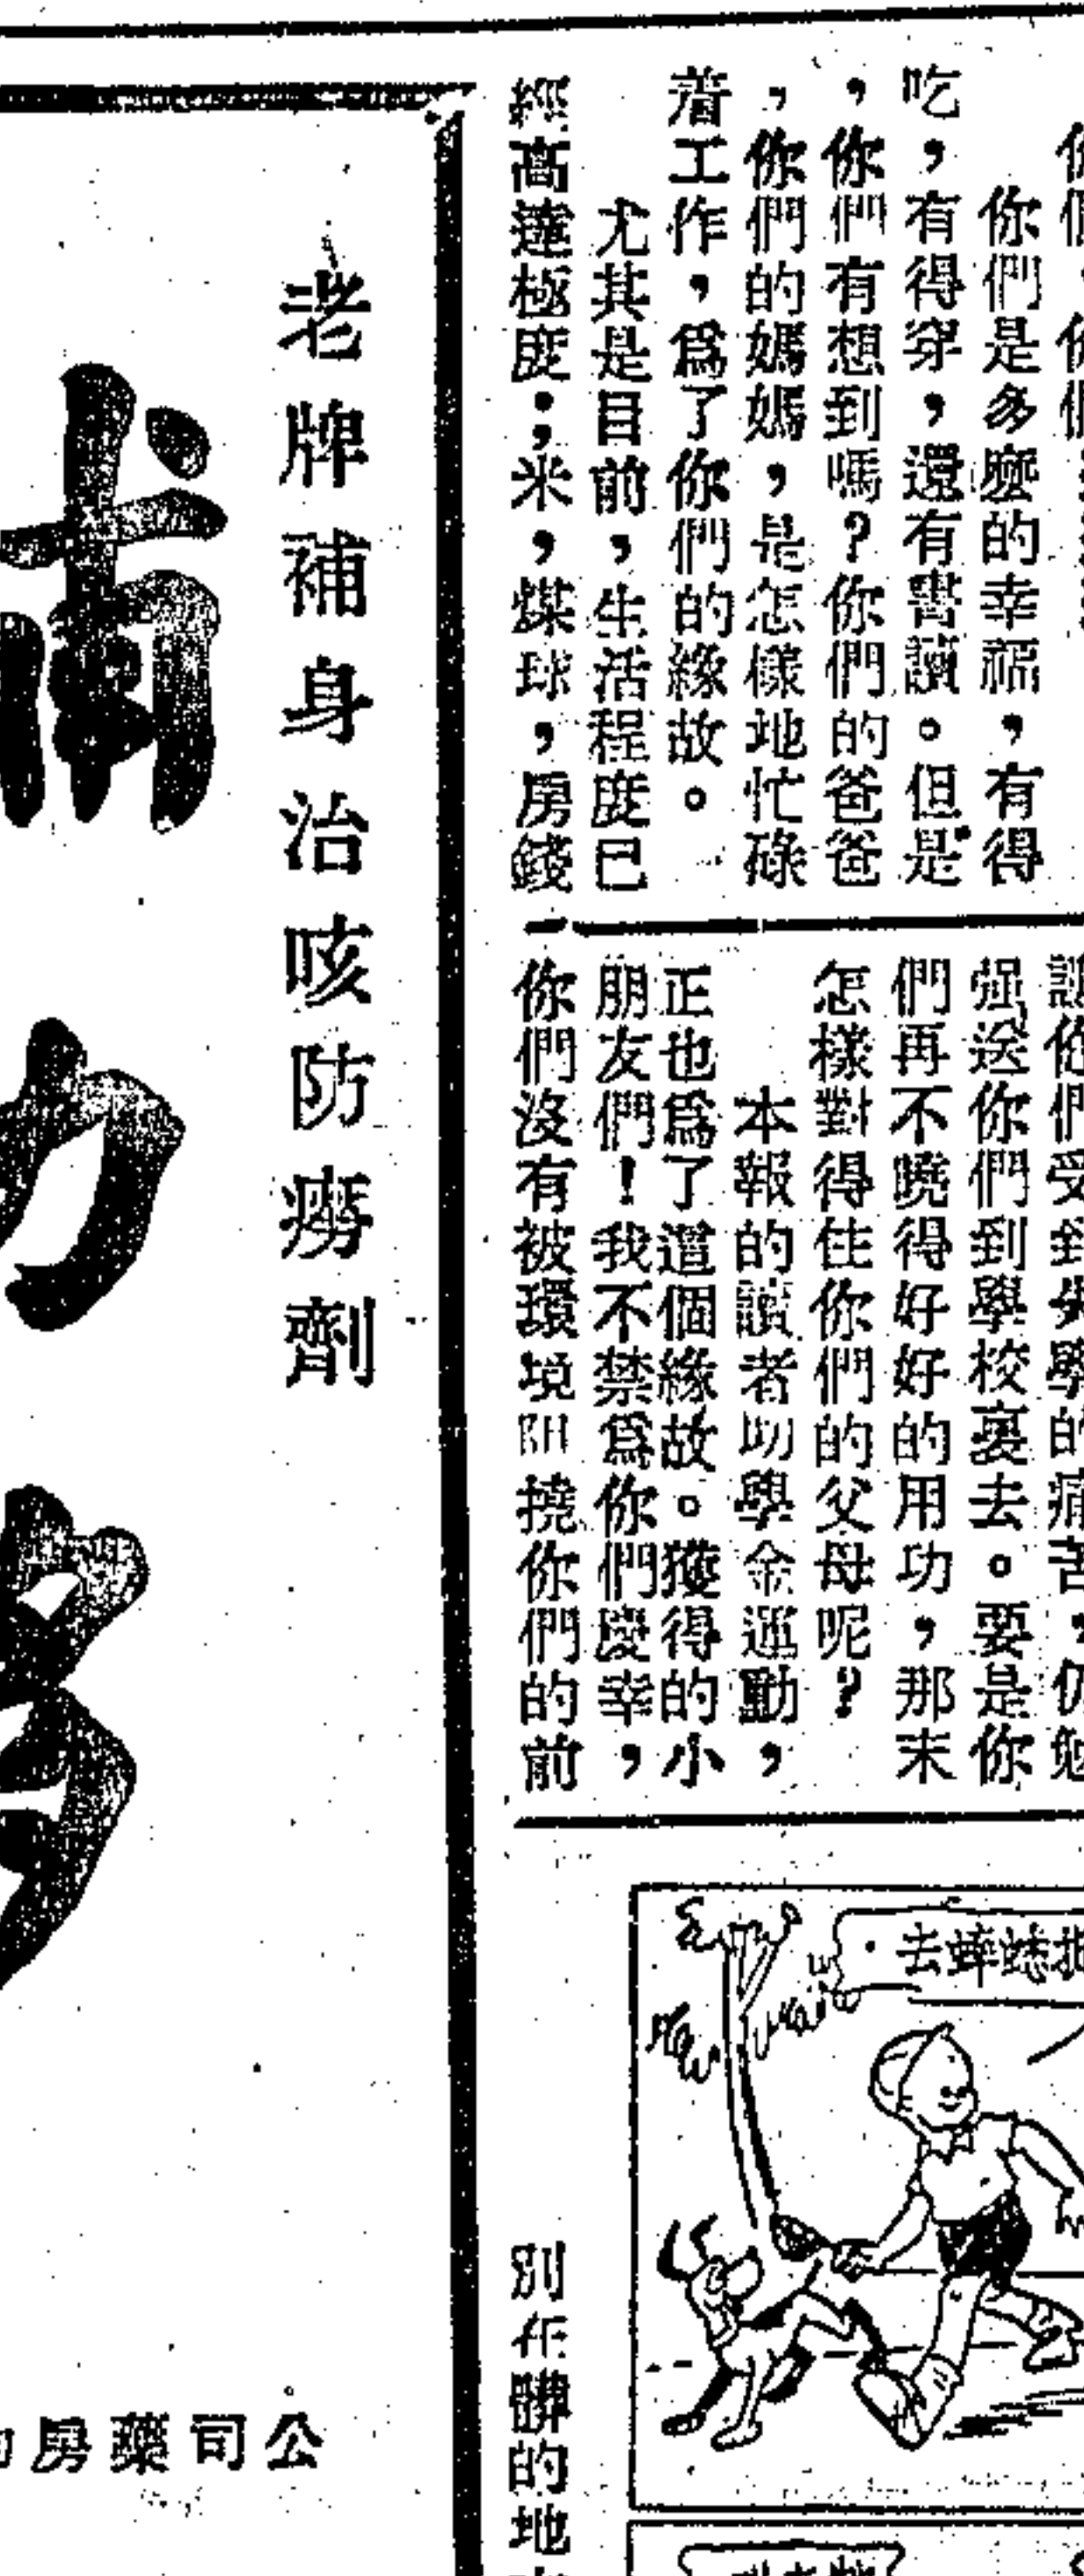 你們是多麼的幸福，有得
吃，有得穿，還有書讀。但是
，你們有想到嗎？你們的爸爸
，你們的媽媽，是怎樣地忙碌
着工作，爲了你們的緣故。
尤其是目前，生活程度已
經高達極度；米，煤球，房錢
強送你們到學校裏去。要是你
們再不曉得好好的用功，那末
怎樣對得住你們的父母呢？
本報的讀者助學金運動，
正也爲了這個緣故。獲得的小
朋友們！我不禁爲你們慶幸，
你們沒有被環境阻撓你們的前
去蟀蟋
別在髒的地
老牌補身治咳防癆劑
公司藥房